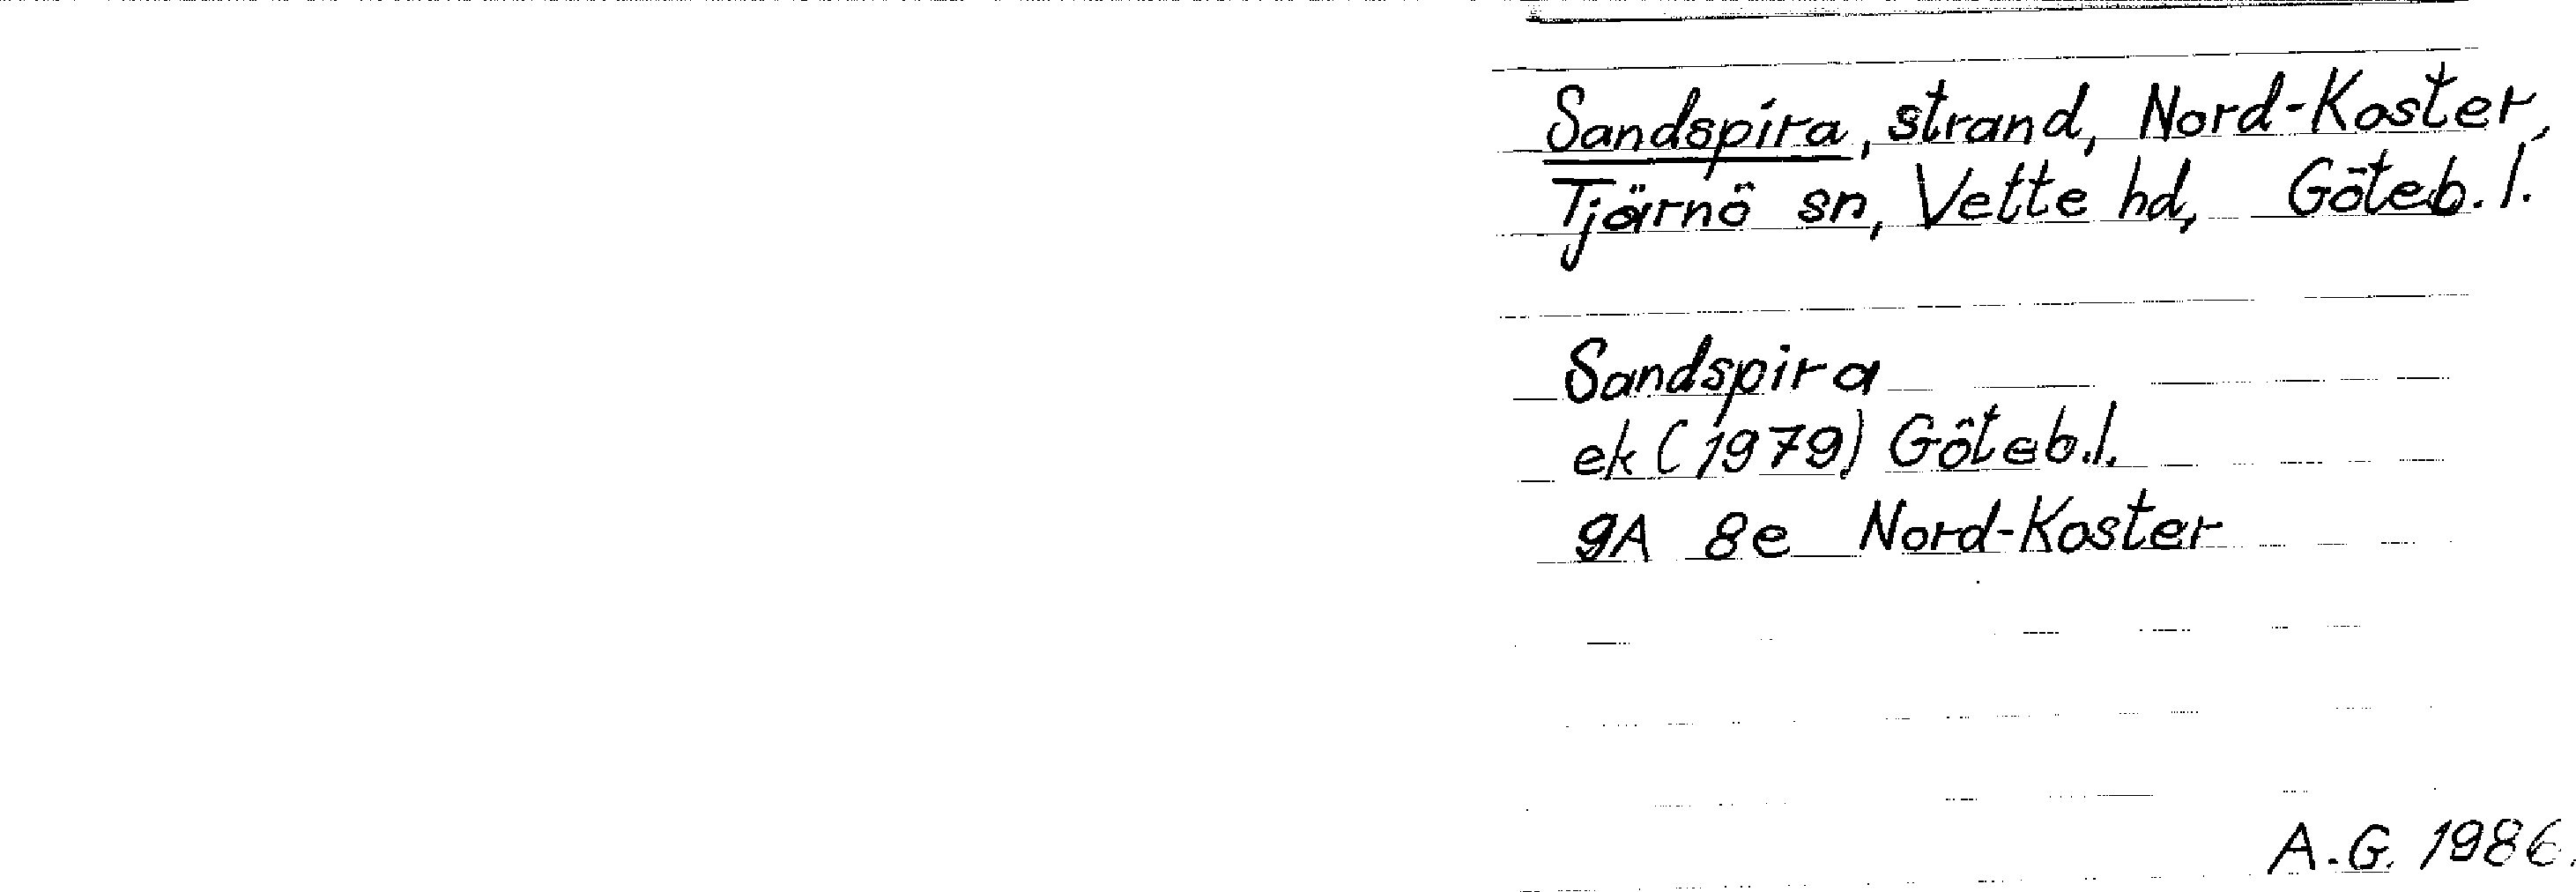 Sandspira, strand, Nord-Koster,
Tjärnö sn, Vette hd, Göteb. l.
Sandspira
ek (1979) Göteb.l.
9A 8e Nord-Koster
A.G. 1986.